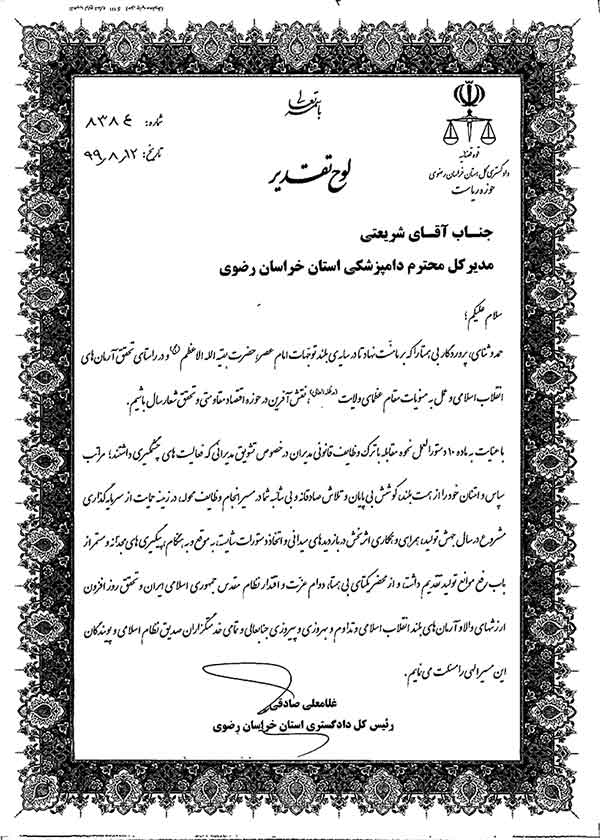 باسمه تعالی
قوه قضائیه
دادگستری کل استان خراسان رضوی
حوزه ریاست
شماره: ۸۳۸۴
تاریخ: ۹۹٫۸٫۱۲
لوح تقدیر
جناب آقای شریعتی
مدیر کل محترم دامپزشکی استان خراسان رضوی
سلام علیکم؛
حمد و ثنای، پروردگار بی همتا را که بر ما منّت نهاد تا در سایه ی بلند توجّهات امام عصر؛ حضرت بقیه الله الاعظم (عج) و در راستای تحقق آرمان های
انقلاب اسلامی و عمل به منویات مقام عظمای ولایت (مدظله العالی)؛ نقش آفرین در حوزه اقتصاد مقاومتی و تحقق شعار سال باشیم.
با عنایت به ماده ۱۰ دستورالعمل نحوه مقابله با ترک وظایف قانونی مدیران در خصوص تشویق مدیرانی که فعالیت های چشمگیری داشتند؛ مراتب
سپاس و امتنان خود را از همت بلند، کوشش بی پایان و تلاش صادقانه و بی شائبه شما در مسیر انجام وظایف محوله، در زمینه حمایت از سرمایه گذاری
مشروع در سال جهش تولید، همراهی و همکاری اثربخش در بازدیدهای میدانی و اتخاذ دستورات شایسته، به موقع و به هنگام، پیگیری های مجدانه و مستمر از
باب رفع موانع تولید تقدیم داشته و از محضر یکتای بی همتا، دوام عزت و اقتدار نظام مقدس جمهوری اسلامی ایران و تحقق روز افزون
ارزشهای والا و آرمان های بلند انقلاب اسلامی و تداوم و بهروزی و پیروزی جنابعالی و تمامی خدمتگزاران صدیق نظام اسلامی و پویندگان
این مسیر الهی را مسئلت می نمایم.
غلامعلی صادقی
رئیس کل دادگستری استان خراسان رضوی